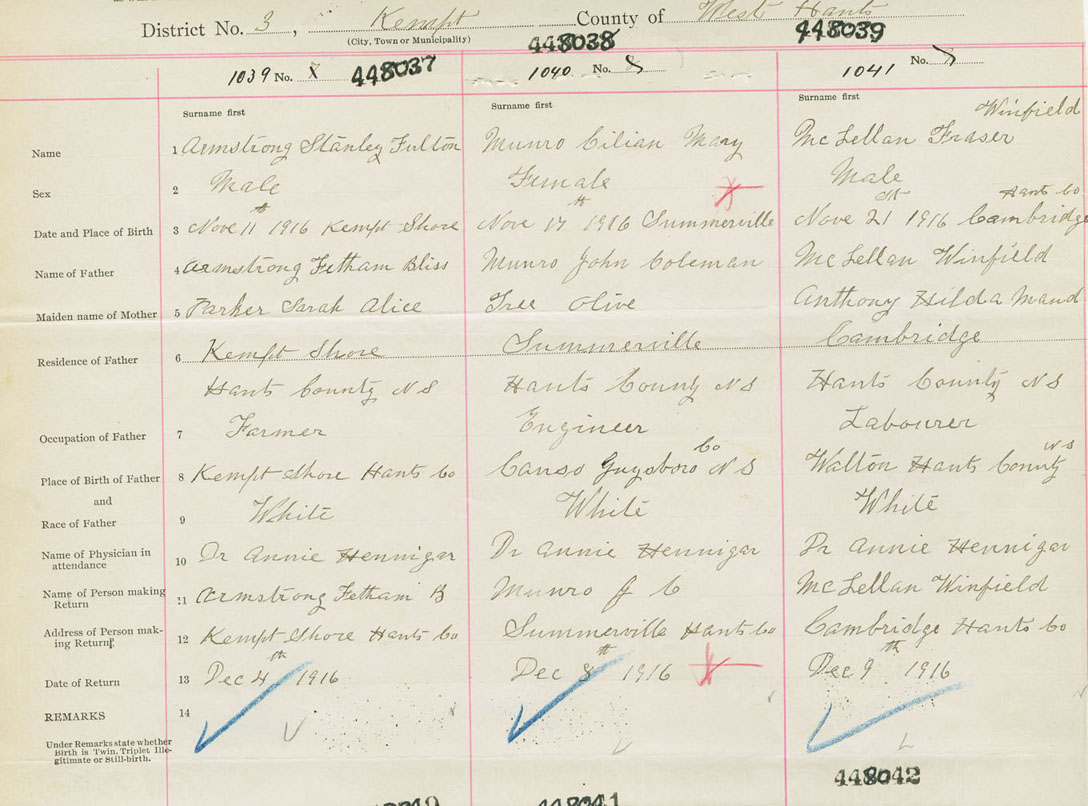 District No. 3, Kempt County of West Hants
(City, Town or Municipality)
448038 448039
1039 No. 448037 1040 No. 8 1041 No.
Surname first Surname first Surname first
Winfield
Name 1 Armstrong Stanley Fulton Munro Lilian Mary McLellan Fraser
Sex 2 Male Female Male
th th st Hants Co
Date and Place of Birth 3 Nove 11 1916 Kempt Shore Nov 17 1916 Summerville Nove 21 1916 Cambridge
Name of Father 4 Armstrong Fetham Bliss Munro John Coleman McLellan Winfield
Maiden name of Mother 5 Parker Sarah Alice Tree Olive Anthony Hilda Maud
Residence of Father 6 Kempt Shore Summerville Cambridge
Hants County NS Hants County NS Hants County NS
Occupation of Father 7 Farmer Engineer Labourer
Co NS
Place of Birth of Father 8 Kempt Shore Hants Co Canso Guysboro NS Walton Hants County
and
Race of Father 9 White White White
Name of Physician in
attendance 10 Dr Annie Hennigar Dr Annie Hennigar Dr Annie Hennigar
Name of Person making
Return 11 Armstrong Fetham B Munro J C McLellan Winfield
Address of Person mak-
ing Return 12 Kempt Shore Hants Co Summerville Hants Co Cambridge Hants Co
th th th
Date of Return 13 Dec 4 1916 Dec 8 1916 Dec 9 1916
REMARKS 14
Under Remarks state whether
Birth is Twin, Triplet Ille-
gitimate or Still-birth.
448042
448041